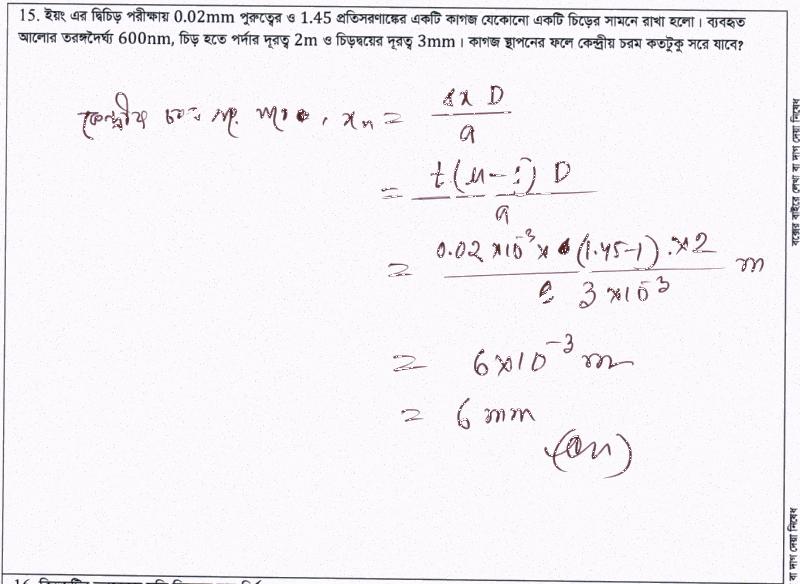 15. ইয়ং এর দ্বিচিড় পরীক্ষায় 0.02mm পুরুত্বের ও 1.45 প্রতিসরণাঙ্কের একটি কাগজ যেকোনো একটি চিড়ের সামনে রাখা হলো। ব্যবহৃত
আলোর তরঙ্গদৈর্ঘ্য 600nm, চিড় হতে পর্দার দূরত্ব 2m ও চিড়দ্বয়ের দূরত্ব 3mm। কাগজ স্থাপনের ফলে কেন্দ্রীয় চরম কতটুকু সরে যাবে?
কেন্দ্রীয় চরম , xₙ = Δx D / a
= t(μ-1) D / a
= 0.02 ×10⁻³ × (1.45-1) . ×2 / 3 ×10⁻³ m
= 6×10⁻³ m
= 6 mm
(Ans)
বক্সের বাইরে লেখা বা দাগ দেয়া নিষেধ
বা দাগ দেয়া নিষেধ